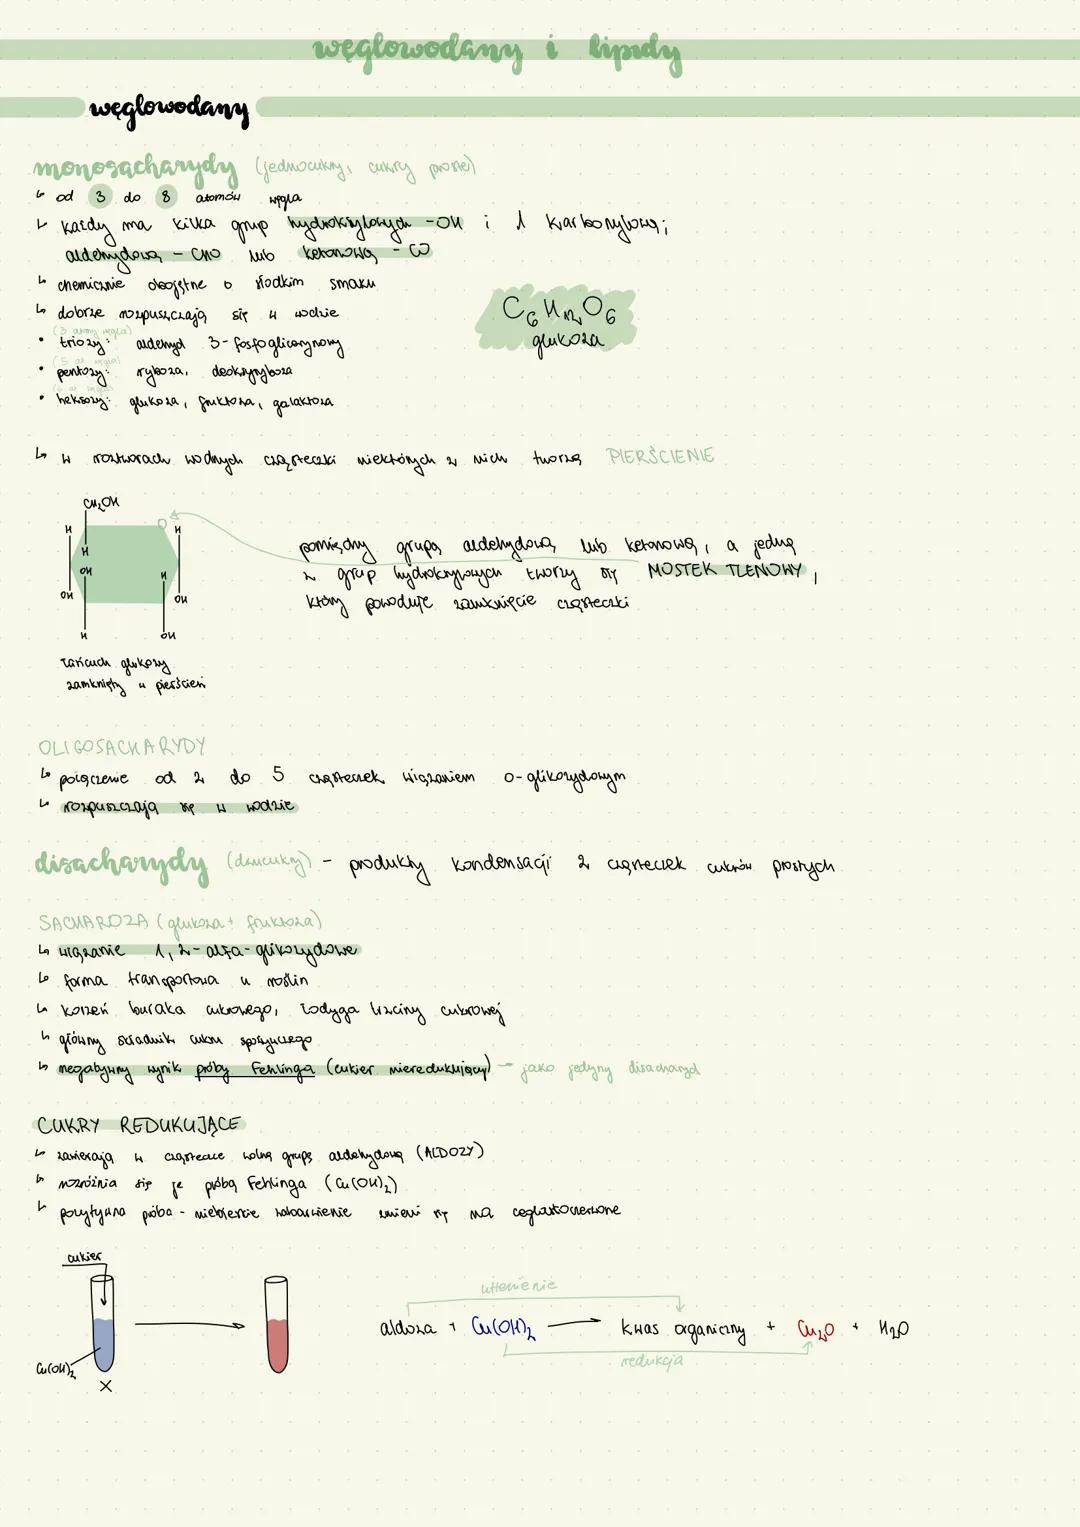 węglowodany i lipidy
węglowodany
monosacharydy (jednocukry, cukry proste)
↳ od 3 do 8 atomów węgla
↳ każdy ma kilka grup hydroksylowych -OH i 1 karbonylową;
aldehydową - CHO lub ketonową - CO
↳ chemicznie obojętne o słodkim smaku
↳ dobrze rozpuszczają się w wodzie
(3 atomy węgla)
• triozy: aldehyd 3-fosfoglicerynowy
(5 at. węgla)
• pentozy: ryboza, deoksyryboza
(6 at. węgla)
• heksozy: glukoza, fruktoza, galaktoza
C6H12O6
glukoza
↳ w roztworach wodnych cząsteczki niektórych z nich tworzą PIERŚCIENIE
CH2OH
H O H
H
OH H
OH OH
H OH
łańcuch glukozy
zamknięty w pierścień
pomiędzy grupą aldehydową lub ketonową, a jedną
z grup hydroksylowych tworzy się MOSTEK TLENOWY,
który powoduje zamknięcie cząsteczki
OLIGOSACHARYDY
↳ połączenie od 2 do 5 cząsteczek wiązaniem O-glikozydowym
↳ rozpuszczają się w wodzie
disacharydy (dwucukry) - produkty kondensacji 2 cząsteczek cukrów prostych
SACHAROZA (glukoza + fruktoza)
↳ wiązanie 1,2-alfa-glikozydowe
↳ forma transportowa u roślin
↳ korzeń buraka cukrowego, łodyga trzciny cukrowej
↳ główny składnik cukru spożywczego
↳ negatywny wynik próby Fehlinga (cukier nieredukujący) → jako jedyny disacharyd
CUKRY REDUKUJĄCE
↳ zawierają w cząsteczce wolną grupę aldehydową (ALDOZY)
↳ rozróżnia się je próbą Fehlinga (Cu(OH)2)
↳ pozytywna próba - niebieskie zabarwienie zmieni się na ceglastoczerwone
cukier
Cu(OH)2
X
utlenienie
aldoza + Cu(OH)2 → kwas organiczny + Cu2O + H2O
redukcja